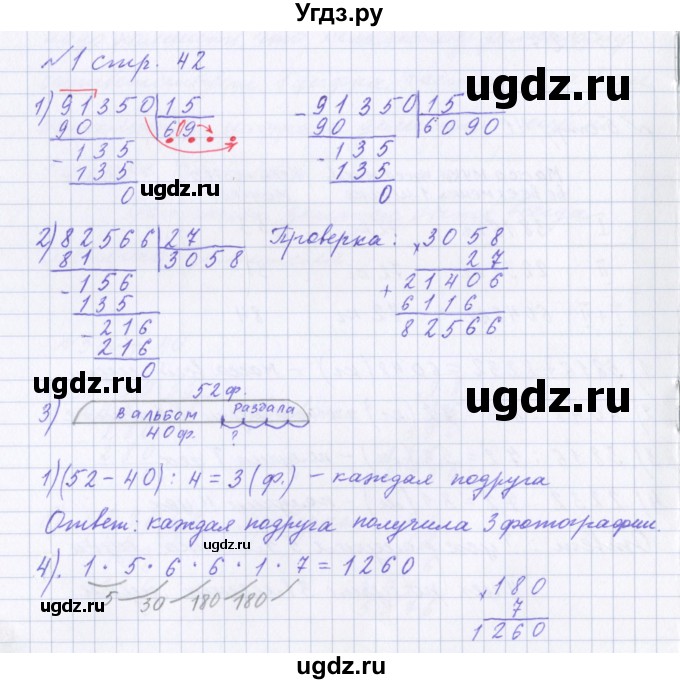 Угдз.ру
№1 стр. 42
1) 91350 | 15
90 609
- 135
135
0
- 91350 | 15
90 6090
- 135
135
0
ugdz.ru
ugdz.ru
ugdz.ru
2) 82566 | 27
81 3058
- 156
135
- 216
216
0
Проверка:
× 3058
27
+ 21406
6116
82566
ugdz.ru
ugdz.ru
3) 52ф.
в альбом раздала
40ф. ?
ugdz.ru
1) (52-40) : 4 = 3 (ф.) – каждая подруга
Ответ: каждая подруга получила 3 фотографии.
ugdz.ru
4). 1 · 5 · 6 · 6 · 1 · 7 = 1260
5 30 180 180
× 180
7
1260
ugdz.ru
ugdz.ru
ugdz.ru